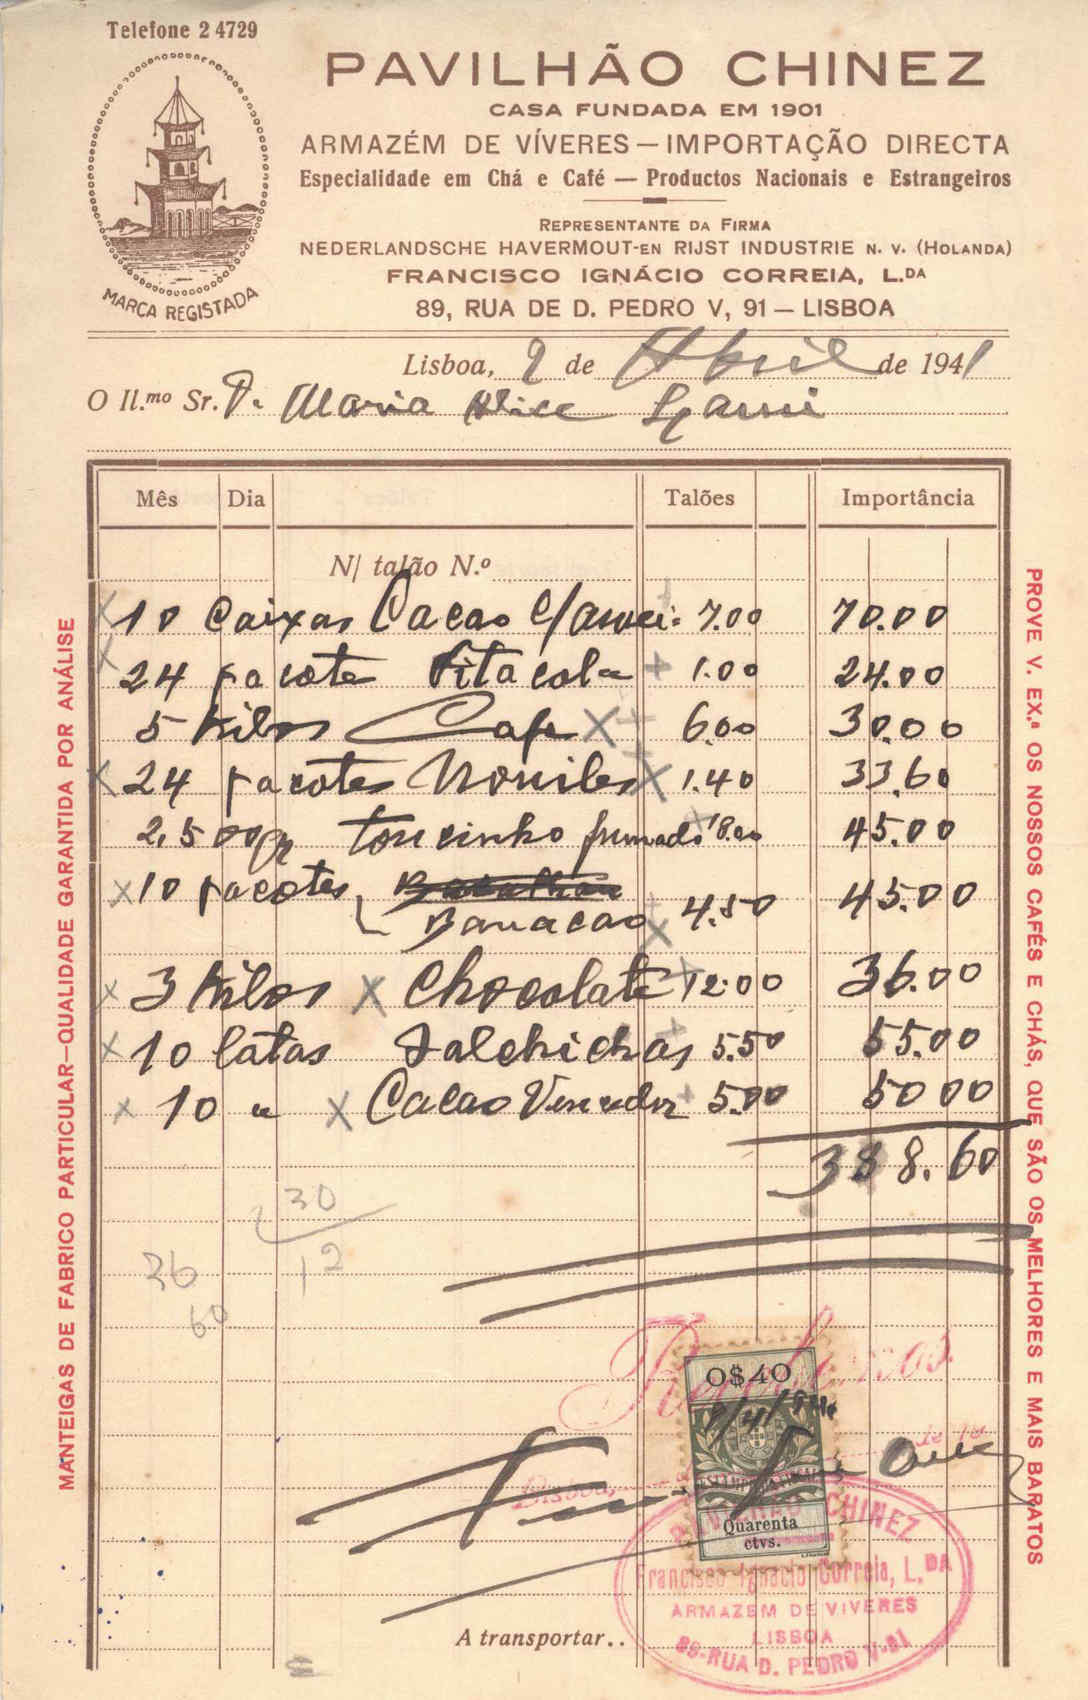 Telefone 2 4729
PAVILHÃO CHINEZ
CASA FUNDADA EM 1901
ARMAZÉM DE VÍVERES — IMPORTAÇÃO DIRECTA
Especialidade em Chá e Café — Productos Nacionais e Estrangeiros
REPRESENTANTE DA FIRMA
NEDERLANDSCHE HAVERMOUT-EN RIJST INDUSTRIE N. V. (HOLANDA)
FRANCISCO IGNÁCIO CORREIA, L.DA
89, RUA DE D. PEDRO V, 91 — LISBOA
MARCA REGISTADA
Lisboa, 9 de Abril de 1941
O Il.mo Sr. D. Maria Alice
Mês Dia Talões Importância
N/ talão N.º
10 Caixas Cacao 7.00 70.00
24 pacote Vitacola 1.00 24.00
5 Kilos Cafe 6.00 30.00
24 pacotes 1.40 33.60
2,500gr toucinho fumado 18.00 45.00
10 pacotes
Banacao 4.50 45.00
3 Kilos Chocolate 12.00 36.00
10 latas Salchichas 5.50 55.00
10 " Cacao 5.00 50 00
388.60
30
12
36
60
MANTEIGAS DE FABRICO PARTICULAR—QUALIDADE GARANTIDA POR ANÁLISE
PROVE V. EX.ª OS NOSSOS CAFÉS E CHÁS, QUE SÃO OS MELHORES E MAIS BARATOS
Recebemos.
Lisboa, de 19
0$40
9/4/941
ESTAMPILHA FISCAL
Quarenta
ctvs.
PAVILHÃO CHINEZ
Francisco Ignacio Correia, L.DA
ARMAZEM DE VIVERES
LISBOA
89-RUA D. PEDRO V-91
A transportar..